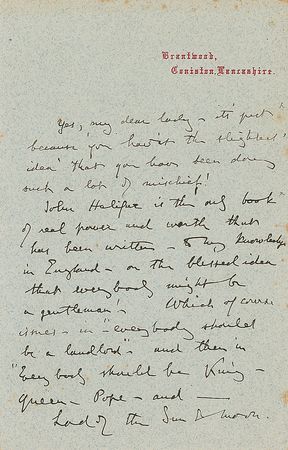 Brantwood,
Coniston, Lancashire.
Yes, my dear lady - it's just
because 'you hav'nt the slightest
idea' that you have been doing
such a lot of mischief!
John Halifax is the only book
of real power and worth that
has been written - to my knowledge
in England - on the blessed idea
that everybody might be
a gentleman! Which of course
issues - in "everybody should
be a landlord" - and then in
"Everybody should be King -
Queen - Pope - and -
Lord of the Sun & moon.